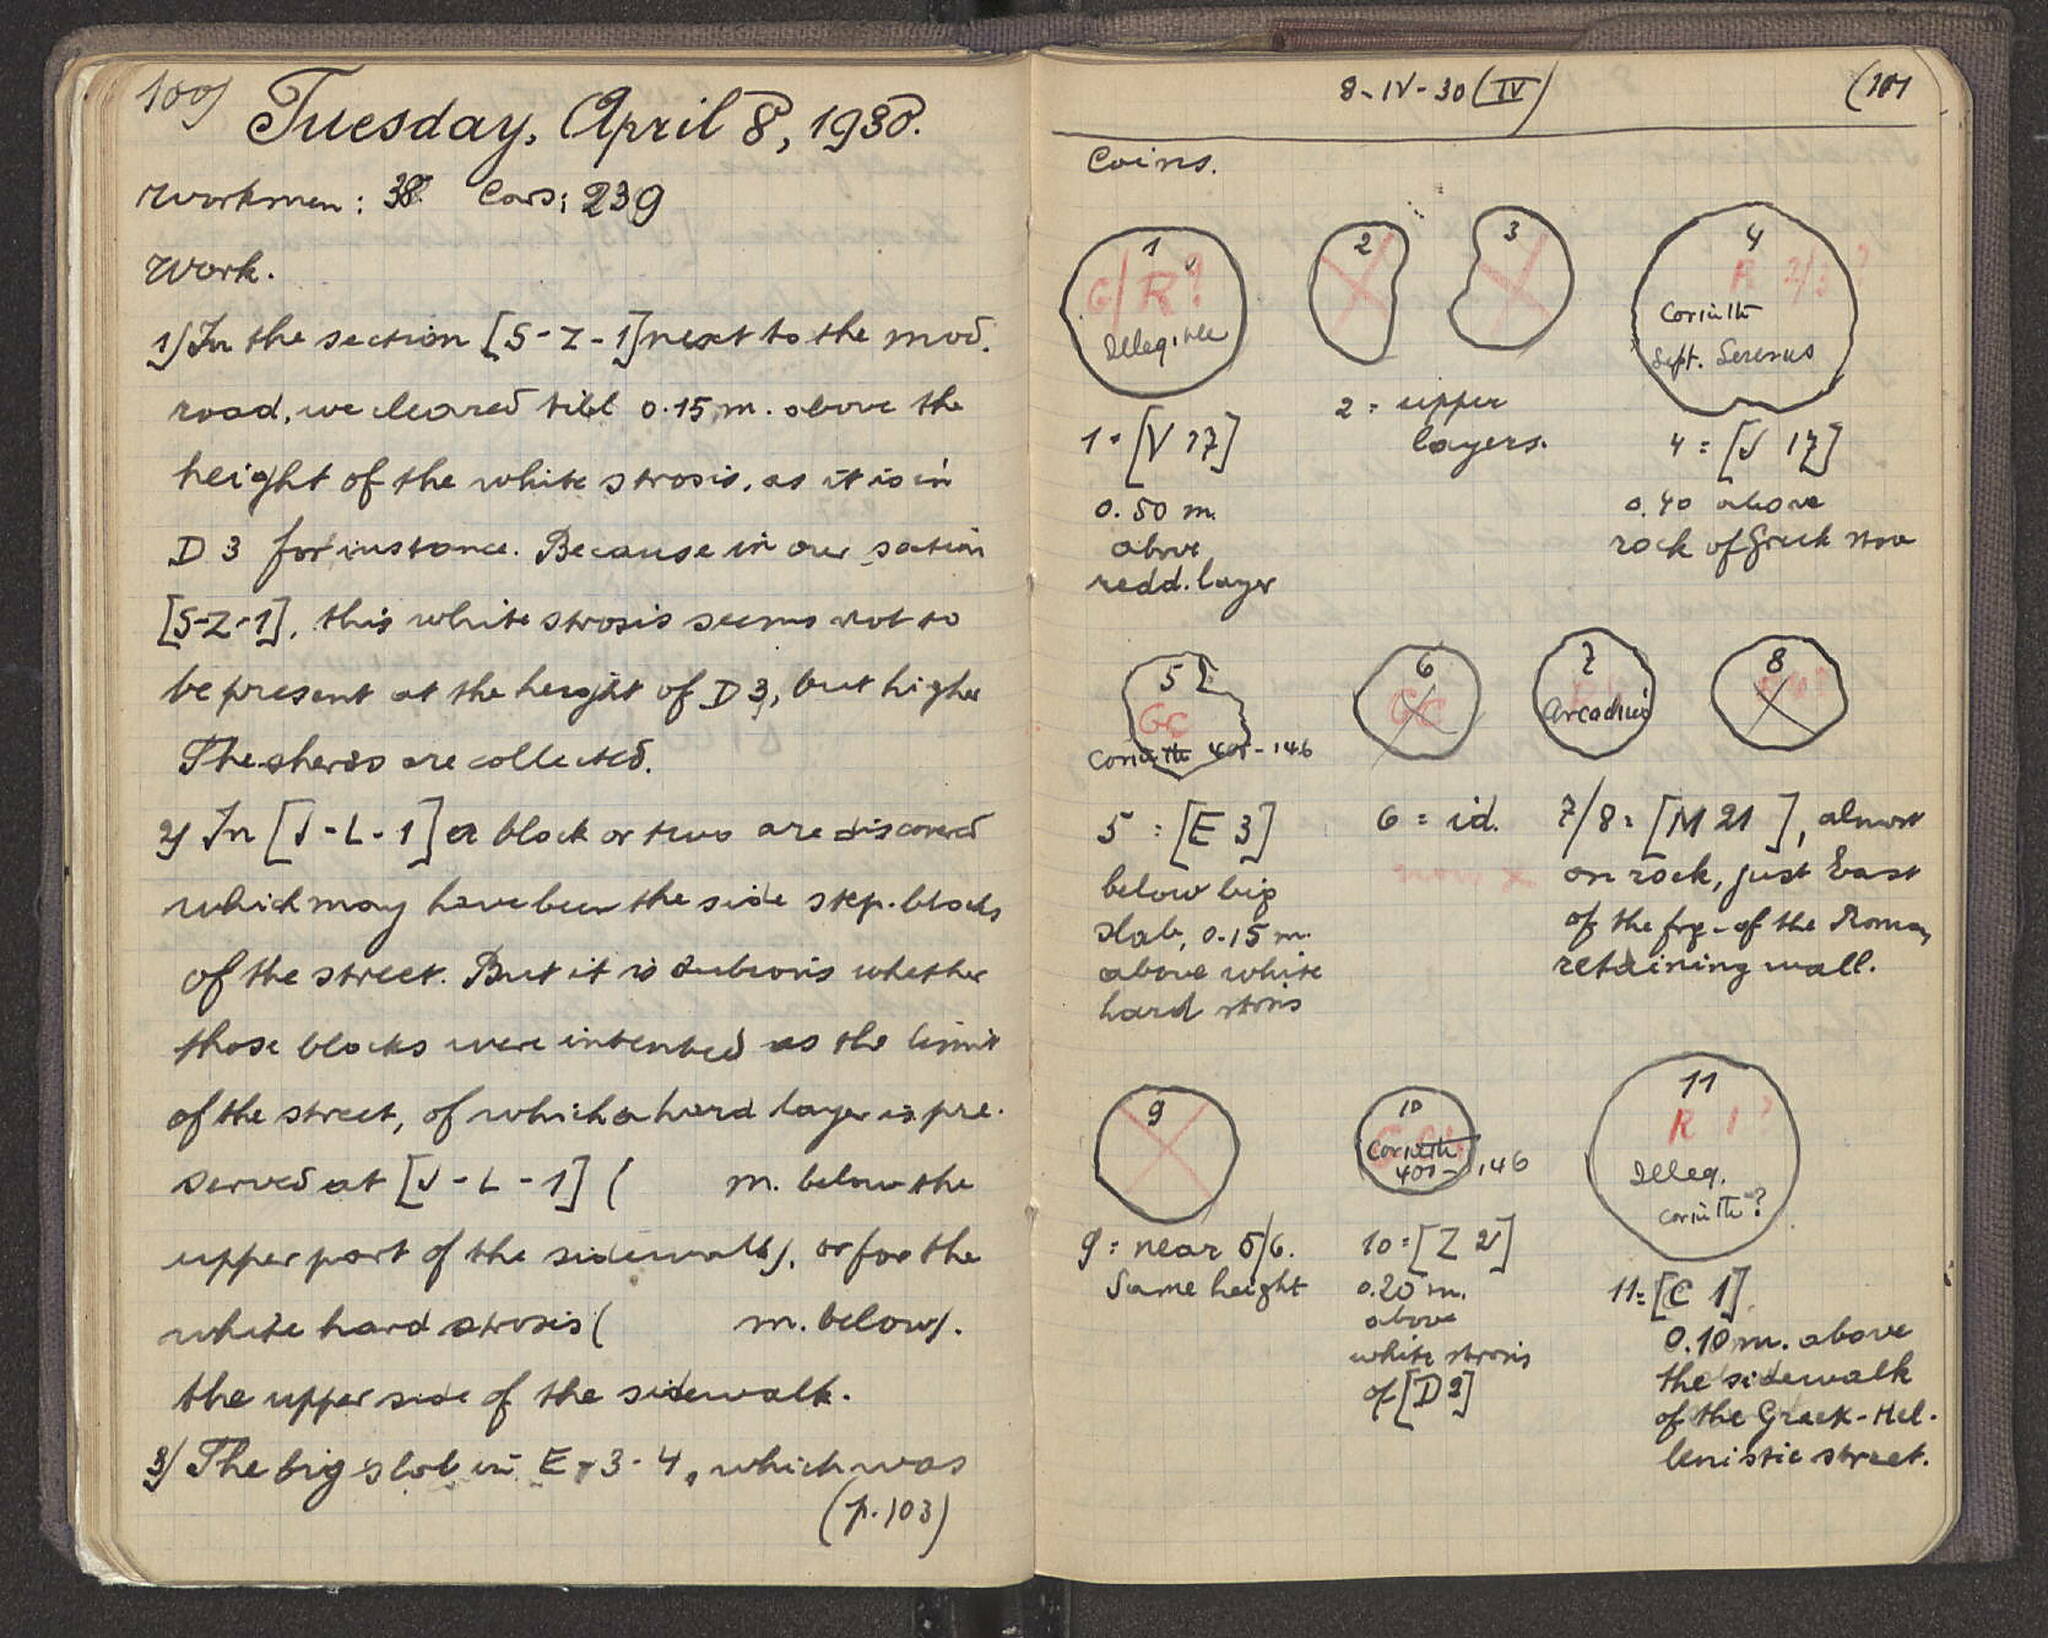 100)
Tuesday, April 8, 1930.
Workmen: 38. Cars: 239
Work.
1) In the section [S-Z-1] next to the mod.
road, we cleared till 0.15 m. above the
height of the white strosis, as it is in
D 3 for instance. Because in our section
[S-Z-1], this white strosis seems not to
be present at the height of D 3, but higher
The sherds are collected.
2) In [J-L-1] a block or two are discovered
which may have been the side step-blocks
of the street. But it is dubious whether
those blocks were intented as the limit
of the street, of which a hard layer is pre-
served at [J-L-1] ( m. below the
upper part of the sidewalk), or for the
white hard strosis ( m. below).
the upper side of the sidewalk.
3) The big slab in E-3-4, which was
(p. 103)
8-IV-30 (IV)
(101
Coins.
1
G/R?
Illegible
2
3
4
R 2/3?
Corinth
Sept. Severus
1 = [V 17]
0.50 m.
above
redd. layer
2 = upper
layers.
4 = [J 17]
0.40 above
rock of Greek stoa
5
GC
Corinth 400-146
6
GC
7
Arcadius
8
5 = [E 3]
below big
slab, 0.15 m.
above white
hard strosis
6 = id.
7/8 = [M 21], almost
on rock, just East
of the frg. of the Roman
retaining wall.
9
10
Corinth
400-146
11
R 1?
Illeg.
Corinth?
9 = near 5/6.
Same height
10 = [Z 2]
0.20 m.
above
white strosis
of [D 2]
11 = [C 1]
0.10 m. above
the sidewalk
of the Greek-Hel-
lenistic street.